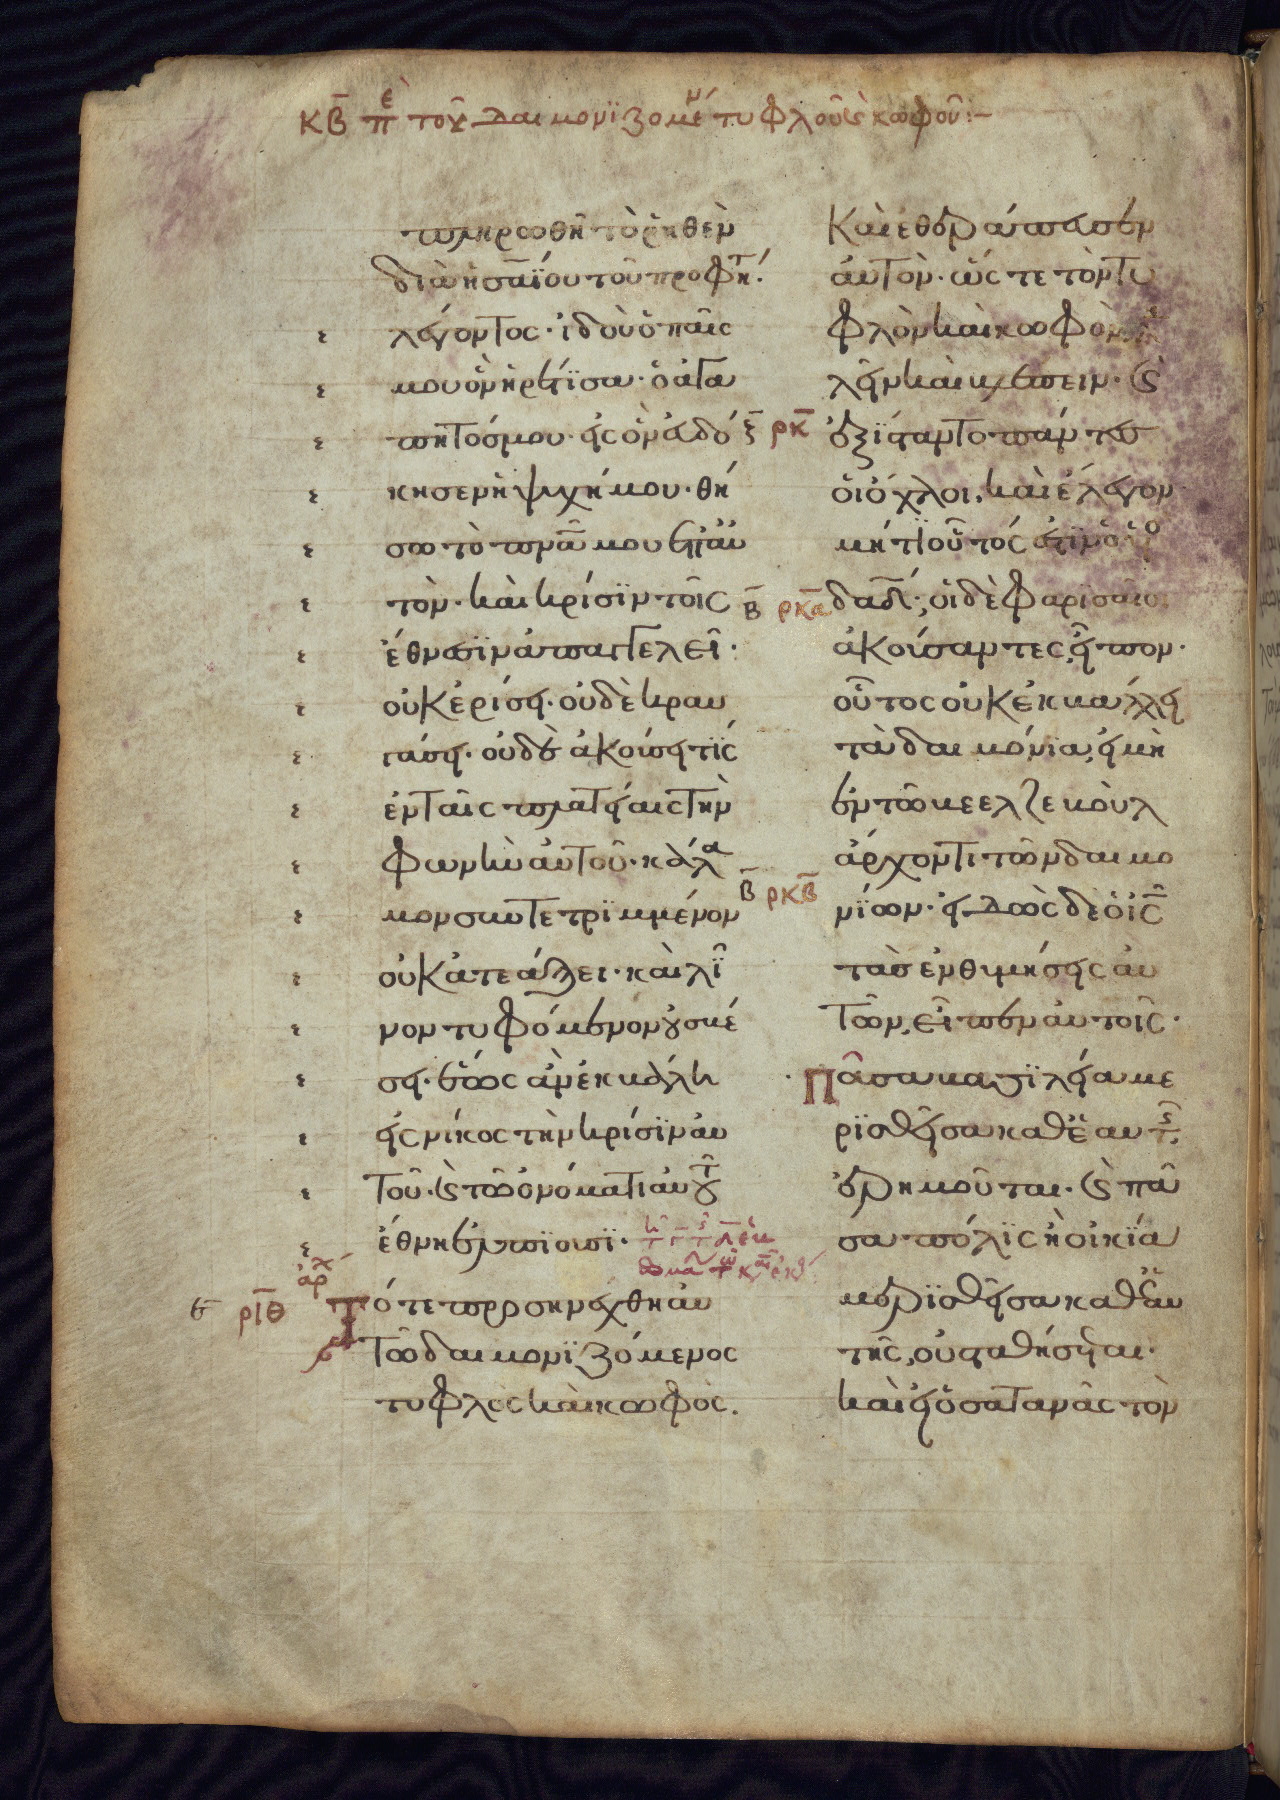 κβ πε τοῦ δαιμονϊζομέν τυφλοῦ ϗ κωφοῦ:–
πληρωθῆ τὸ ῥηθὲν
διὰ ἡσαΐου τοῦ προφήτ
λέγοντος· ἰδοὺ ὁ παῖς
μου ὃν ἡρέτϊσα· ὁ ἀγα
πητός μου· εἰς ὃν ἐυδό
κησεν ἡ ψυχή μου· θή
σω τὸ πνᾶ μου ἐπ αὐ
τὸν· καὶ κρίσϊν τοῖς
ἔθνεσϊν ἀπαγγελεῖ·
οὐκ ἐρίσει· οὐδὲ κραυ
γάσει· οὐδὲ ἀκούσει τὶς
ἐν ταῖς πλατείαις τὴν
φωνὴν ἀυτοῦ· κάλα
μον συντετρϊμμένον
οὐ κατεάξει· καὶ λῖ
νον τυφόμενον οὐ σβέ
σει· ἕως ἂν ἐκβάλη
εἰς νίκος τὴν κρίσϊν αὐ
τοῦ· ϗ τῶ ὀνόματι αὐτοῦ
ἔθνη ἐλπϊοῦσϊ·
ς ριθ ἀρχ
Τότε προσηνέχθη αὐ
τῶ δαιμονϊζόμενος
τυφλὸς καὶ κωφὸς.
Καὶ ἐθεράπευσεν
ἀυτὸν· ὥς τε τὸν τυ
φλὸν καὶ κωφὸν, ϗ
λαλεῖν καὶ βλέπειν· ϗ
ξ ρκ ἐξίσταντο πάντες
οἱ ὄχλοι, καὶ ἔλεγον
μή τι οὗτός ἐστϊν ὁ υο
β ρκα δαδ; οἱ δὲ φαρισαῖοι
ἀκούσαντες, εἶπον·
οὗτος οὐκ ἐκβάλλει
τὰ δαιμόνϊα, εἰ μὴ
ἐν τῶ βεελζεβοὺλ
ἄρχοντι τῶν δαιμο
β ρκβ νίων· εἰδὼς δὲ ὁ ις
τὰσ ἐνθυμήσεις αὐ
τῶν, εἶπεν ἀυτοῖς·
Πᾶσα βασϊλεία με
ρϊσθεῖσα καθ ἑαυτῆς
ἐρημοῦται· ϗ πᾶ
σα πόλϊς ἢ οἰκία
μερϊσθεῖσα καθ ἑαυ
τῆς, οὐ σταθήσεται·
καὶ εἰ ὁ σατανᾶς τὸν